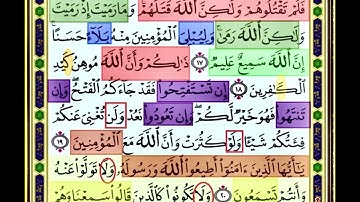 فَلَمْ تَقْتُلُوهُمْ وَلَٰكِنَّ ٱللَّهَ قَتَلَهُمْ ۚ وَمَا رَمَيْتَ إِذْ رَمَيْتَ
وَلَٰكِنَّ ٱللَّهَ رَمَىٰ ۚ وَلِيُبْلِىَ ٱلْمُؤْمِنِينَ مِنْهُ بَلَآءً حَسَنًا ۚ
إِنَّ ٱللَّهَ سَمِيعٌ عَلِيمٌ ١٧ ذَٰلِكُمْ وَأَنَّ ٱللَّهَ مُوهِنُ كَيْدِ
ٱلْكَٰفِرِينَ ١٨ إِن تَسْتَفْتِحُوا۟ فَقَدْ جَآءَكُمُ ٱلْفَتْحُ ۖ وَإِن
تَنتَهُوا۟ فَهُوَ خَيْرٌ لَّكُمْ ۖ وَإِن تَعُودُوا۟ نَعُدْ وَلَن تُغْنِىَ عَنكُمْ
فِئَتُكُمْ شَيْـًٔا وَلَوْ كَثُرَتْ وَأَنَّ ٱللَّهَ مَعَ ٱلْمُؤْمِنِينَ ١٩
يَٰٓأَيُّهَا ٱلَّذِينَ ءَامَنُوٓا۟ أَطِيعُوا۟ ٱللَّهَ وَرَسُولَهُۥ وَلَا تَوَلَّوْا۟ عَنْهُ
وَأَنتُمْ تَسْمَعُونَ ٢٠ وَلَا تَكُونُوا۟ كَٱلَّذِينَ قَالُوا۟ سَمِعْنَا وَهُمْ